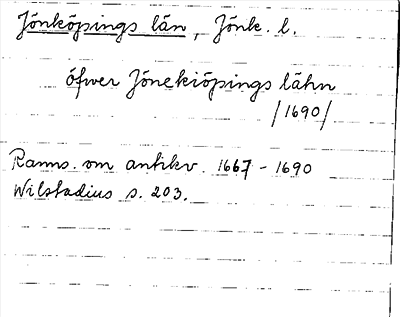 Jönköpings län, Jönk. l.
öfwer Jönekiöpings lähn
/1690/
Ranns. om antikv. 1667-1690
Wilstadius s. 203.